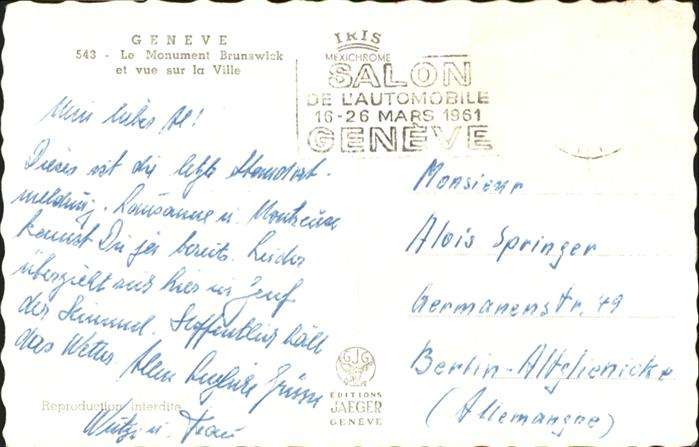 GENEVE
543 - Le Monument Brunswick
et vue sur la Ville
IRIS
MEXICHROME
SALON
DE L'AUTOMOBILE
16-26 MARS 1961
GENÈVE
Mein lieber Al!
Dieses ist die letzte Standort-
meldung. Lausanne u. Montreux
kennst Du ja bereits. Leider
überzieht sich hier in Genf
der Himmel. Hoffentlich hält
das Wetter. Herzliche Grüsse
u. Frau
Monsieur
Alois Springer
Germanenstr. 79
Berlin-Altglienicke
(Allemangne)
Reproduction interdite
GJG
EDITIONS
JAEGER
GENÈVE